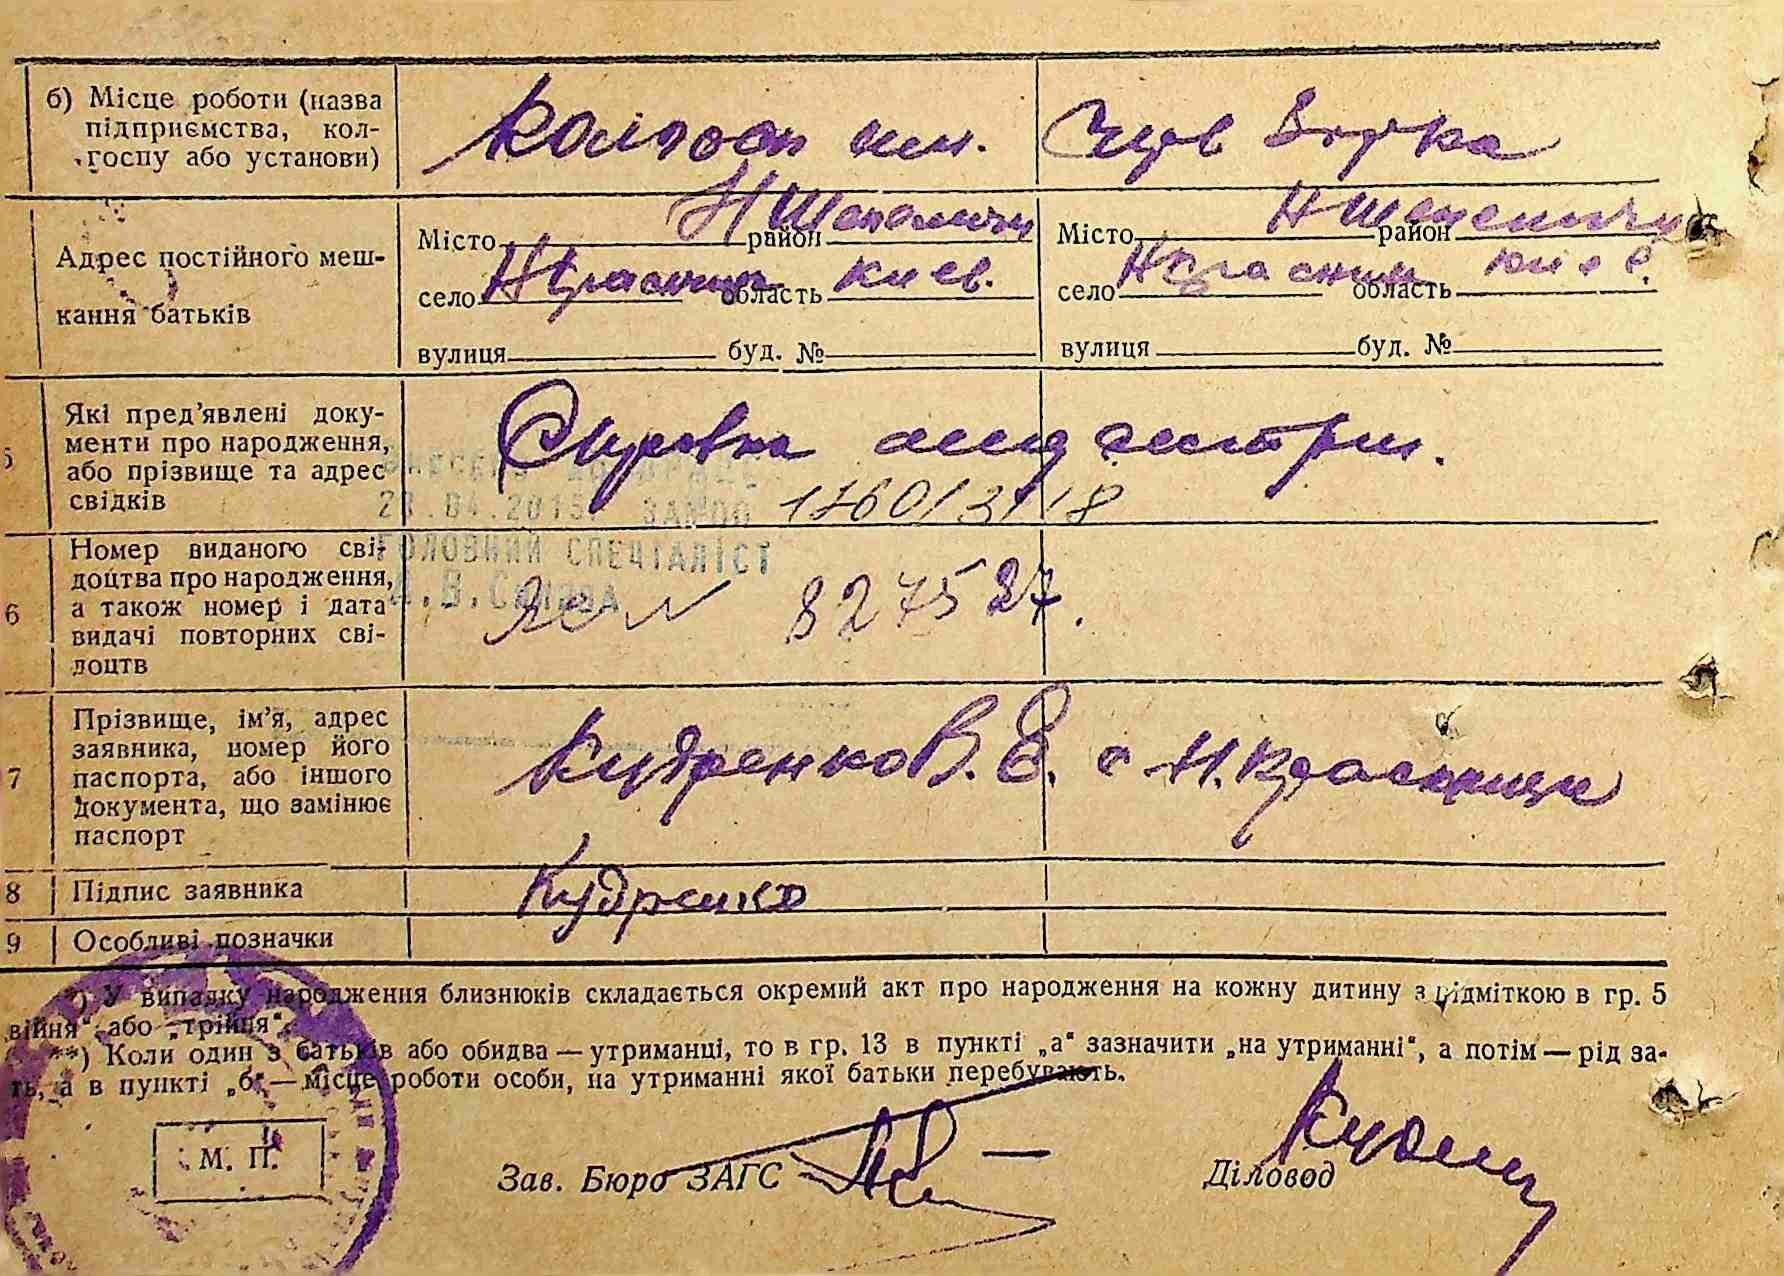 б) Місце роботи (назва
підприємства, кол-
госпу або установи)
колгосп им.
Адрес постійного меш-
кання батьків
Місто район
Н Шепеличи
село Н Красниця область Киев.
вулиця буд. №
Місто район
Н Шепеличи
село Н Красниця область Киев.
вулиця буд. №
5 Які пред'явлені доку-
менти про народження,
або прізвище та адрес
свідків
Справка медсестри.
28.04.2015
ГОЛОВНИЙ СПЕЦІАЛІСТ
6 Номер виданого сві-
доцтва про народження,
а також номер і дата
видачі повторних сві-
доцтв
N 827527.
7 Прізвище, ім'я, адрес
заявника, номер його
паспорта, або іншого
документа, що замінює
паспорт
Кудренко В. Е. с Н. Красниця
8 Підпис заявника
Кудренко
9 Особливі позначки
*) У випадку народження близнюків складається окремий акт про народження на кожну дитину з відміткою в гр. 5
війня" або „трійня".
**) Коли один з батьків або обидва — утриманці, то в гр. 13 в пункті „а" зазначити „на утриманні", а потім — рід за-
ть, а в пункті „б" — місце роботи особи, на утриманні якої батьки перебувають.
М. П.
Зав. Бюро ЗАГС
Діловод